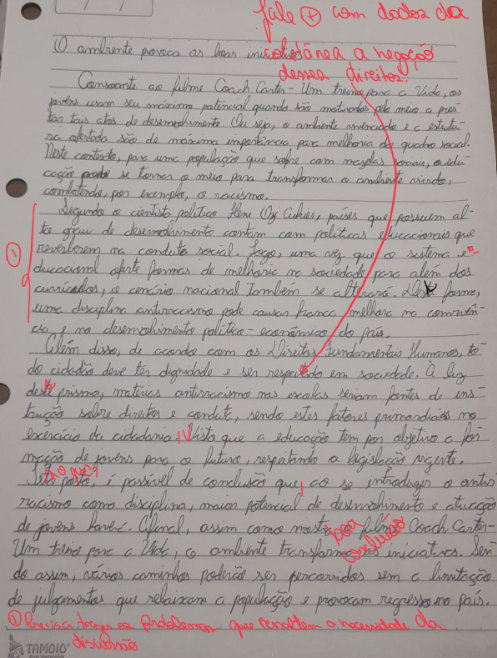 fale + com dados da
coletânea a negação
desses direitos.
O ambiente provoca as boas iniciativas
Consoante ao filme Coach Carter - Um treino para a Vida, os
jovens usam seu máximo potencial quando são motivados pelo meio a pres-
tar tais atos de desenvolvimento. Ou seja, o ambiente vivenciado e a estrutu-
ra ofertada são de máxima importância para melhoria do quadro social.
Neste contexto, para uma população que sofre com mazelas sociais, a edu-
cação pode se tornar o meio para transformar o ambiente vivido,
combatendo, por exemplo, o racismo.
Segundo o cientista político países que possuem al-
to grau de desenvolvimento contam com políticas educacionais que
reverberem na conduta social. Logo, uma vez que o sistema e-
ducacional oferte formas de melhoria na sociedade para além dos
currículos, o cenário nacional também se alterará. Desta forma,
uma disciplina antirracismo pode causar franca melhora na convivên-
cia e no desenvolvimento político-econômico do país.
Além disso, de acordo com os Direitos Fundamentais Humanos, to-
do cidadão deve ter dignidade e ser respeitado em sociedade. À luz
deste prisma, matérias antirracismo nas escolas seriam fontes de ins-
trução sobre direitos e conduta, sendo estes fatores primordiais no
exercício da cidadania, Visto que a educação tem por objetivo a for-
mação de jovens para o futuro, respeitando a legislação vigente.
o que?
posto, é passível de conclusão que, ao se introduzir o antir
racismo como disciplina, maior potencial de desenvolvimento e atuação
de jovens haverá. Afinal, assim como mostra o filme Coach Carter-
Um treino para a Vida, o ambiente transforma as iniciativas. Sen-
do assim, vários caminhos poderão ser percorridos sem a limitação
de julgamentos que rebaixam a população e provocam regresso no país.
conclusão
1 Precisa trazer os problemas que ressaltem a necessidade da
discussão
TAMOIO